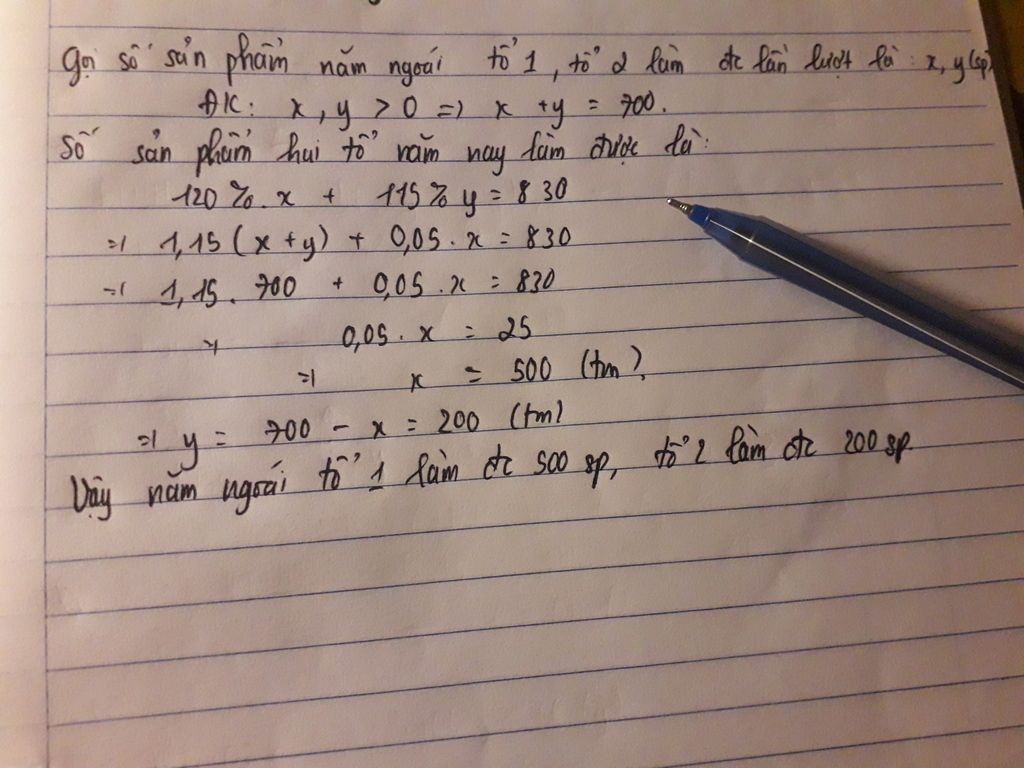 Gọi số sản phẩm năm ngoái tổ 1, tổ 2 làm đc lần lượt là: x, y (sp)
ĐK: x, y > 0 => x + y = 700.
Số sản phẩm hai tổ năm nay làm được là:
120%. x + 115% y = 830
=> 1,15 (x + y) + 0,05. x = 830
=> 1,15. 700 + 0,05. x = 830
=> 0,05. x = 25
=> x = 500 (tm).
=> y = 700 - x = 200 (tm)
Vậy năm ngoái tổ 1 làm đc 500 sp, tổ 2 làm đc 200 sp